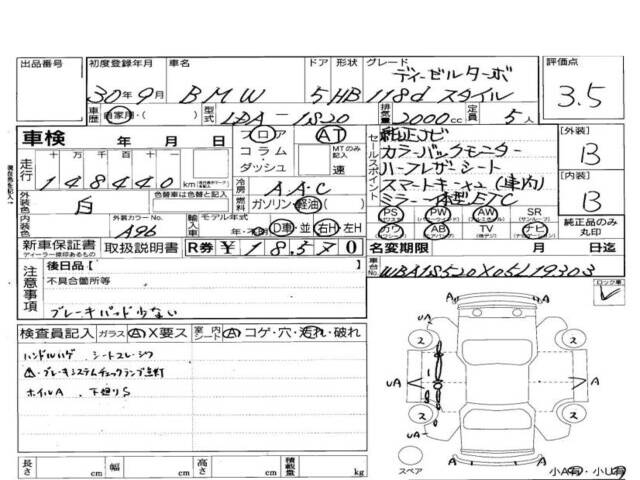 出品番号 初度登録年月 車名 ドア 形状 グレード 評価点
ディーゼルターボ
30年9月 BMW 5 HB 118d スタイル 3.5
車歴 自家用・( ) 型式 LDA-1S20 排気量 2000cc 定員 5人
車検 年 月 日 フロア AT
コラム・ダッシュ MTのみ記入 速
走行 十万千百十一
148440 km
セールスポイント
純正ナビ
カラーバックモニター
ハーフレザーシート
スマートキー
ミラー一体型ETC
[外装] B
[内装] B
冷房 AAC
燃料 ガソリン 軽油
外装色 白 色替車は色替と記入
内装色 外装カラーNo. A96
輸入車 モデル年式 年・D車・並 右H・左H
PS PW AW SR
カワ AB TV ナビ
純正品のみ丸印
新車保証書 取扱説明書 R券 ¥18,570
ディーラー捺印あるもの
名変期限 月 日迄
車台No. WBA1S520X05L19303
注意事項 後日品【 】
不具合箇所等
ブレーキパッド少ない
ロック車
検査員記入 ガラス A X要ス 室シート内 A コゲ・穴・汚れ・破れ
ハンドルハゲ シートスレ・シワ
⚠・ブレーキシステムチェックランプ点灯
ホイルA 下廻りS
UA A
ス ス
UA A A
ス ス
UA A
スペア A 小A有・小U有
長さ cm 幅 cm 高さ cm 積載量 kg